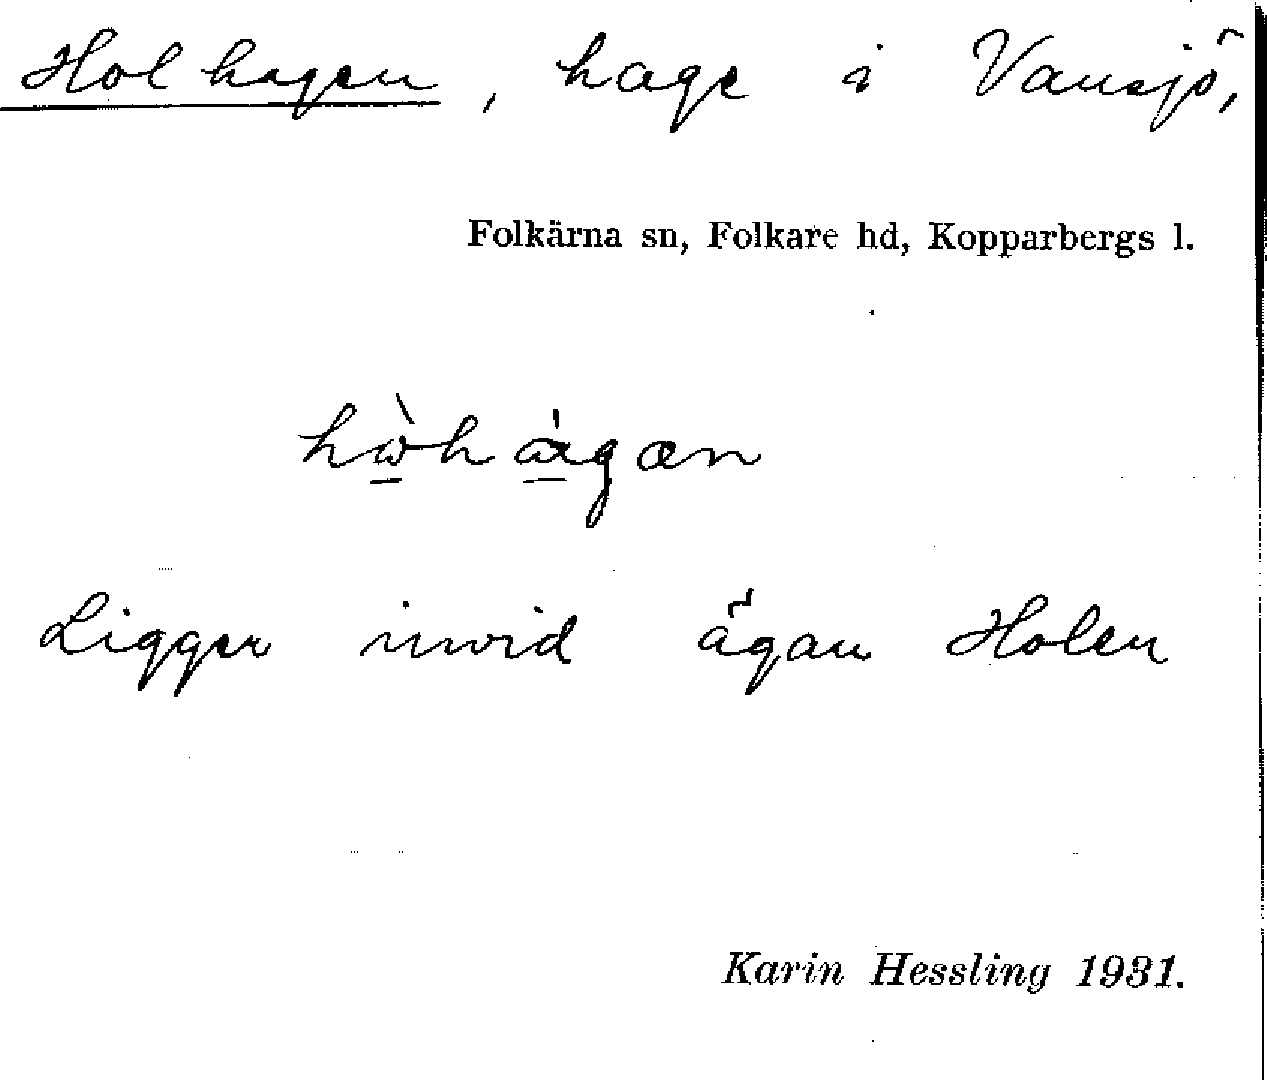 Holhagen, hage i Vansjö,
Folkärna sn, Folkare hd, Kopparbergs l.
hὼ̱ha̱̍gæn
Ligger invid ägan Holen
Karin Hessling 1931.